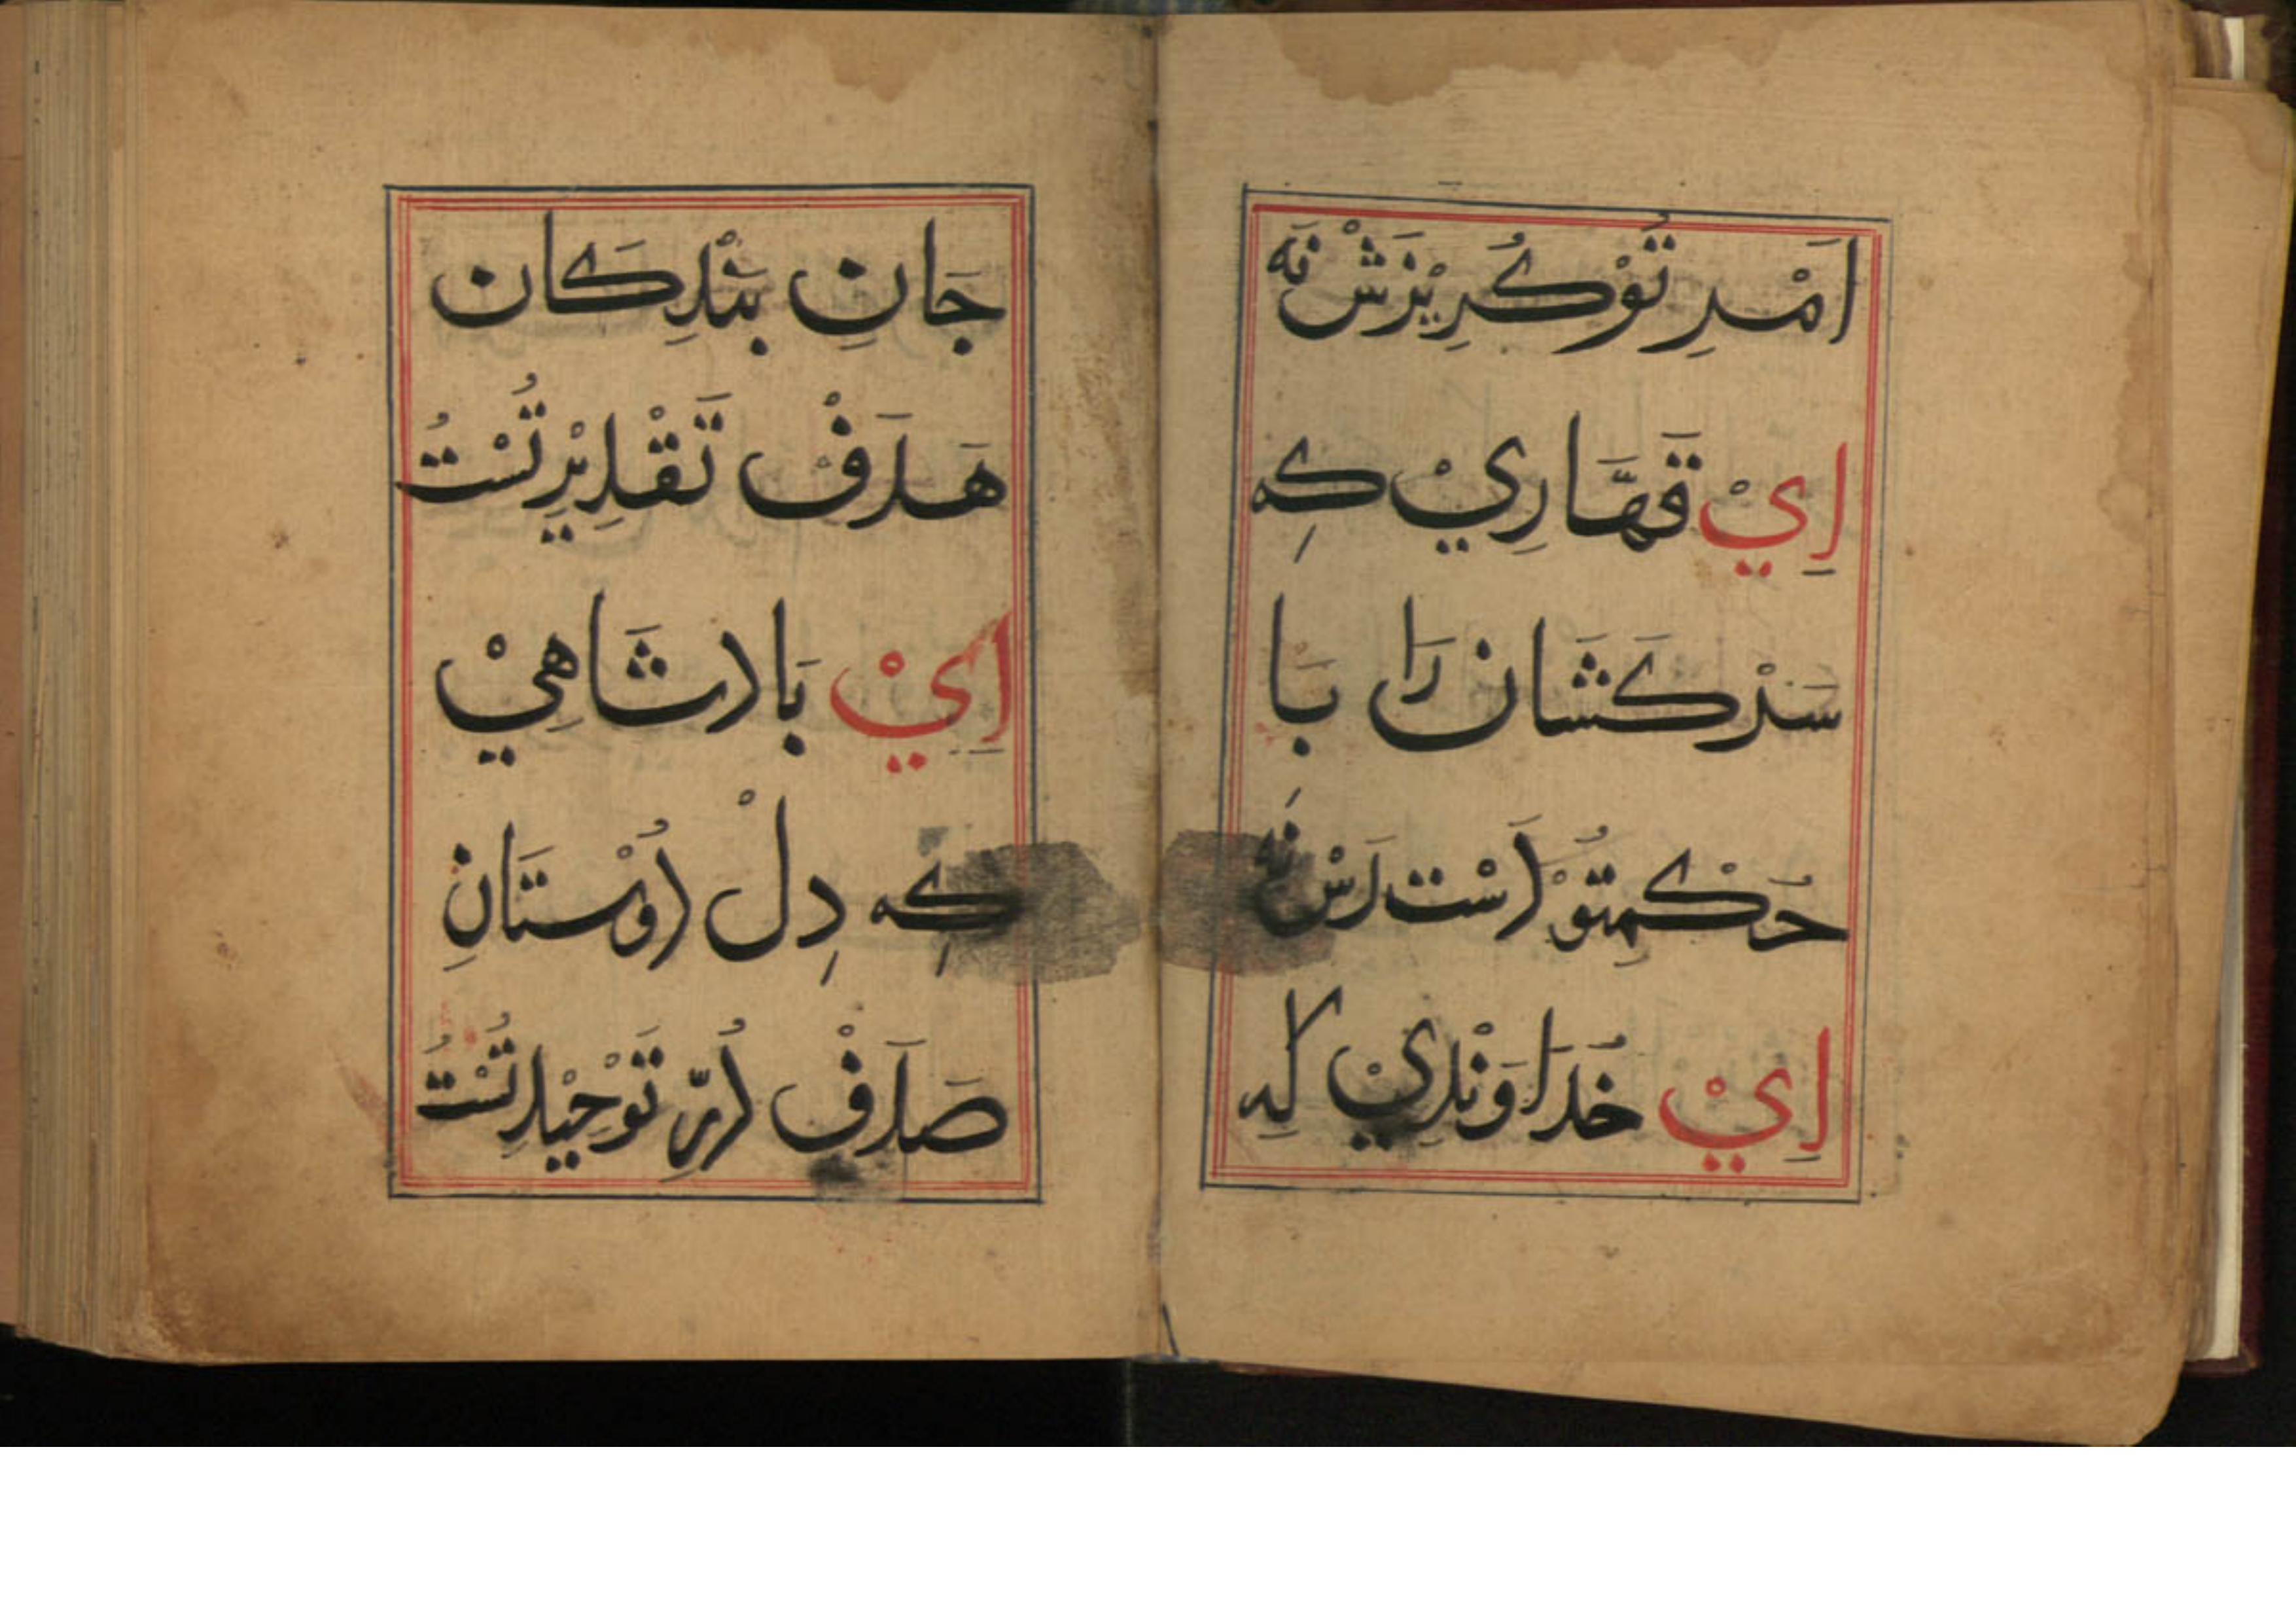 اَمْرِ تُوْ كُرِيْزَشْ نَه
اِيْ قَهَّارِيْ كِه
سَرْكَشَان رَا بَا
حُكْمِتُوْ دَسْت رَسْ نَه
اِيْ خُدَاوَنْدِيْ كِه
جَانِ بَنْدِكَان
هَدَفْ تَقْدِيْرِ تُسْتُ
اِيْ بَادشَاهِيْ
كِه دِلْ دُوْستَانِ
صَدَفْ دُرِّ تَوْحِيْدِ تُسْتُ